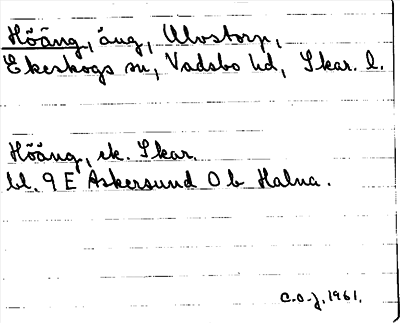 Höäng, äng, Ulvstorp,
Ekeskogs sn, Vadsbo hd, Skar. l.
Höäng, ek. Skar.
bl. 9 E Askersund 0 b Halna.
C.O.J. 1961.